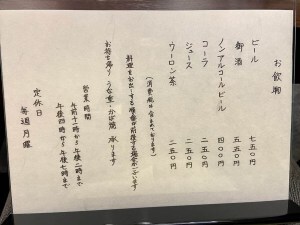 お飲物
ビール 七五〇円
御酒 五五〇円
ノンアルコールビール 四〇〇円
コーラ 二五〇円
ジュース 二五〇円
ウーロン茶 二五〇円
(消費税は含まれております)
料理をお出しする順番が前後する場合がございます
お持ち帰り うな重・かば焼 承ります
営業時間
午前十一時から午後二時まで
午後四時から午後七時まで
定休日
毎週月曜